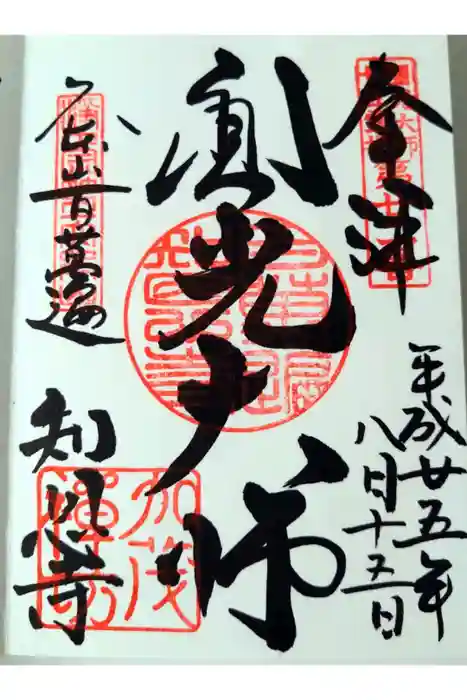 奉拝
平成廿五年
八月十五日
圓光大師
大本山百萬遍
知恩寺
加茂
禅房